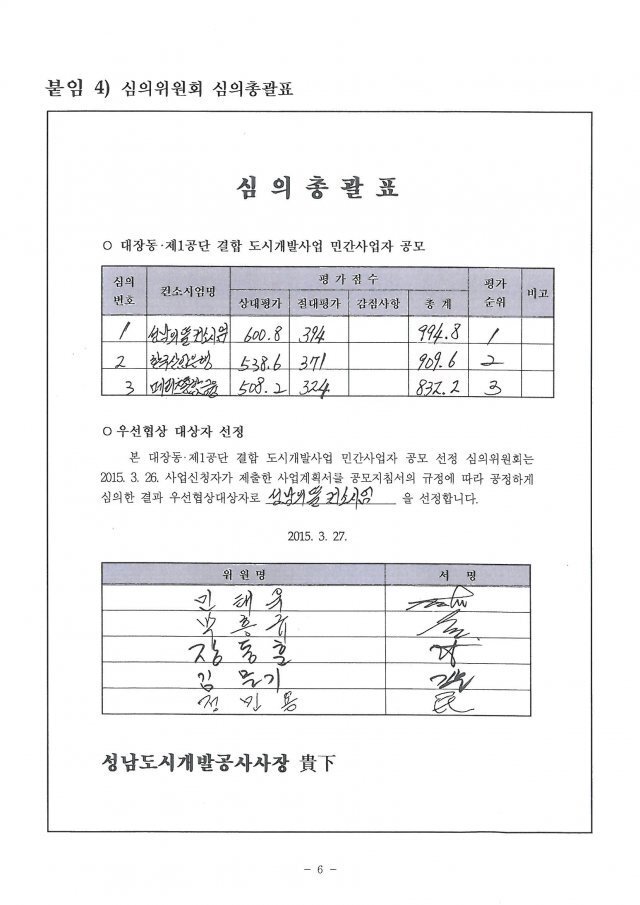 붙임 4) 심의위원회 심의총괄표
심 의 총 괄 표
○ 대장동·제1공단 결합 도시개발사업 민간사업자 공모
심의번호 컨소시엄명 평가점수 평가순위 비고
상대평가 절대평가 감점사항 총 계
1 성남의뜰컨소시엄 600.8 394 994.8 1
2 한국산업은행 538.6 371 909.6 2
3 메리츠종합금융 508.2 324 832.2 3
○ 우선협상 대상자 선정
본 대장동·제1공단 결합 도시개발사업 민간사업자 공모 선정 심의위원회는
2015. 3. 26. 사업신청자가 제출한 사업계획서를 공모지침서의 규정에 따라 공정하게
심의한 결과 우선협상대상자로 성남의뜰 컨소시엄 을 선정합니다.
2015. 3. 27.
위 원 명 서 명
민 태 욱
박 흥 규
장 동 훈
김 문 기
정 민 용 民
성남도시개발공사사장 貴下
- 6 -